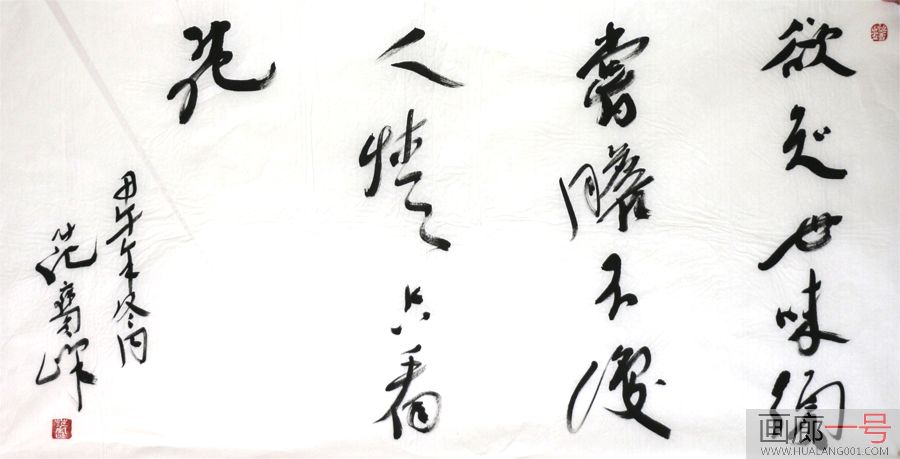 欲知世味須
嘗膽不
人情只看
花
甲午年冬
画廊一号
WWW.HUALANG001.COM